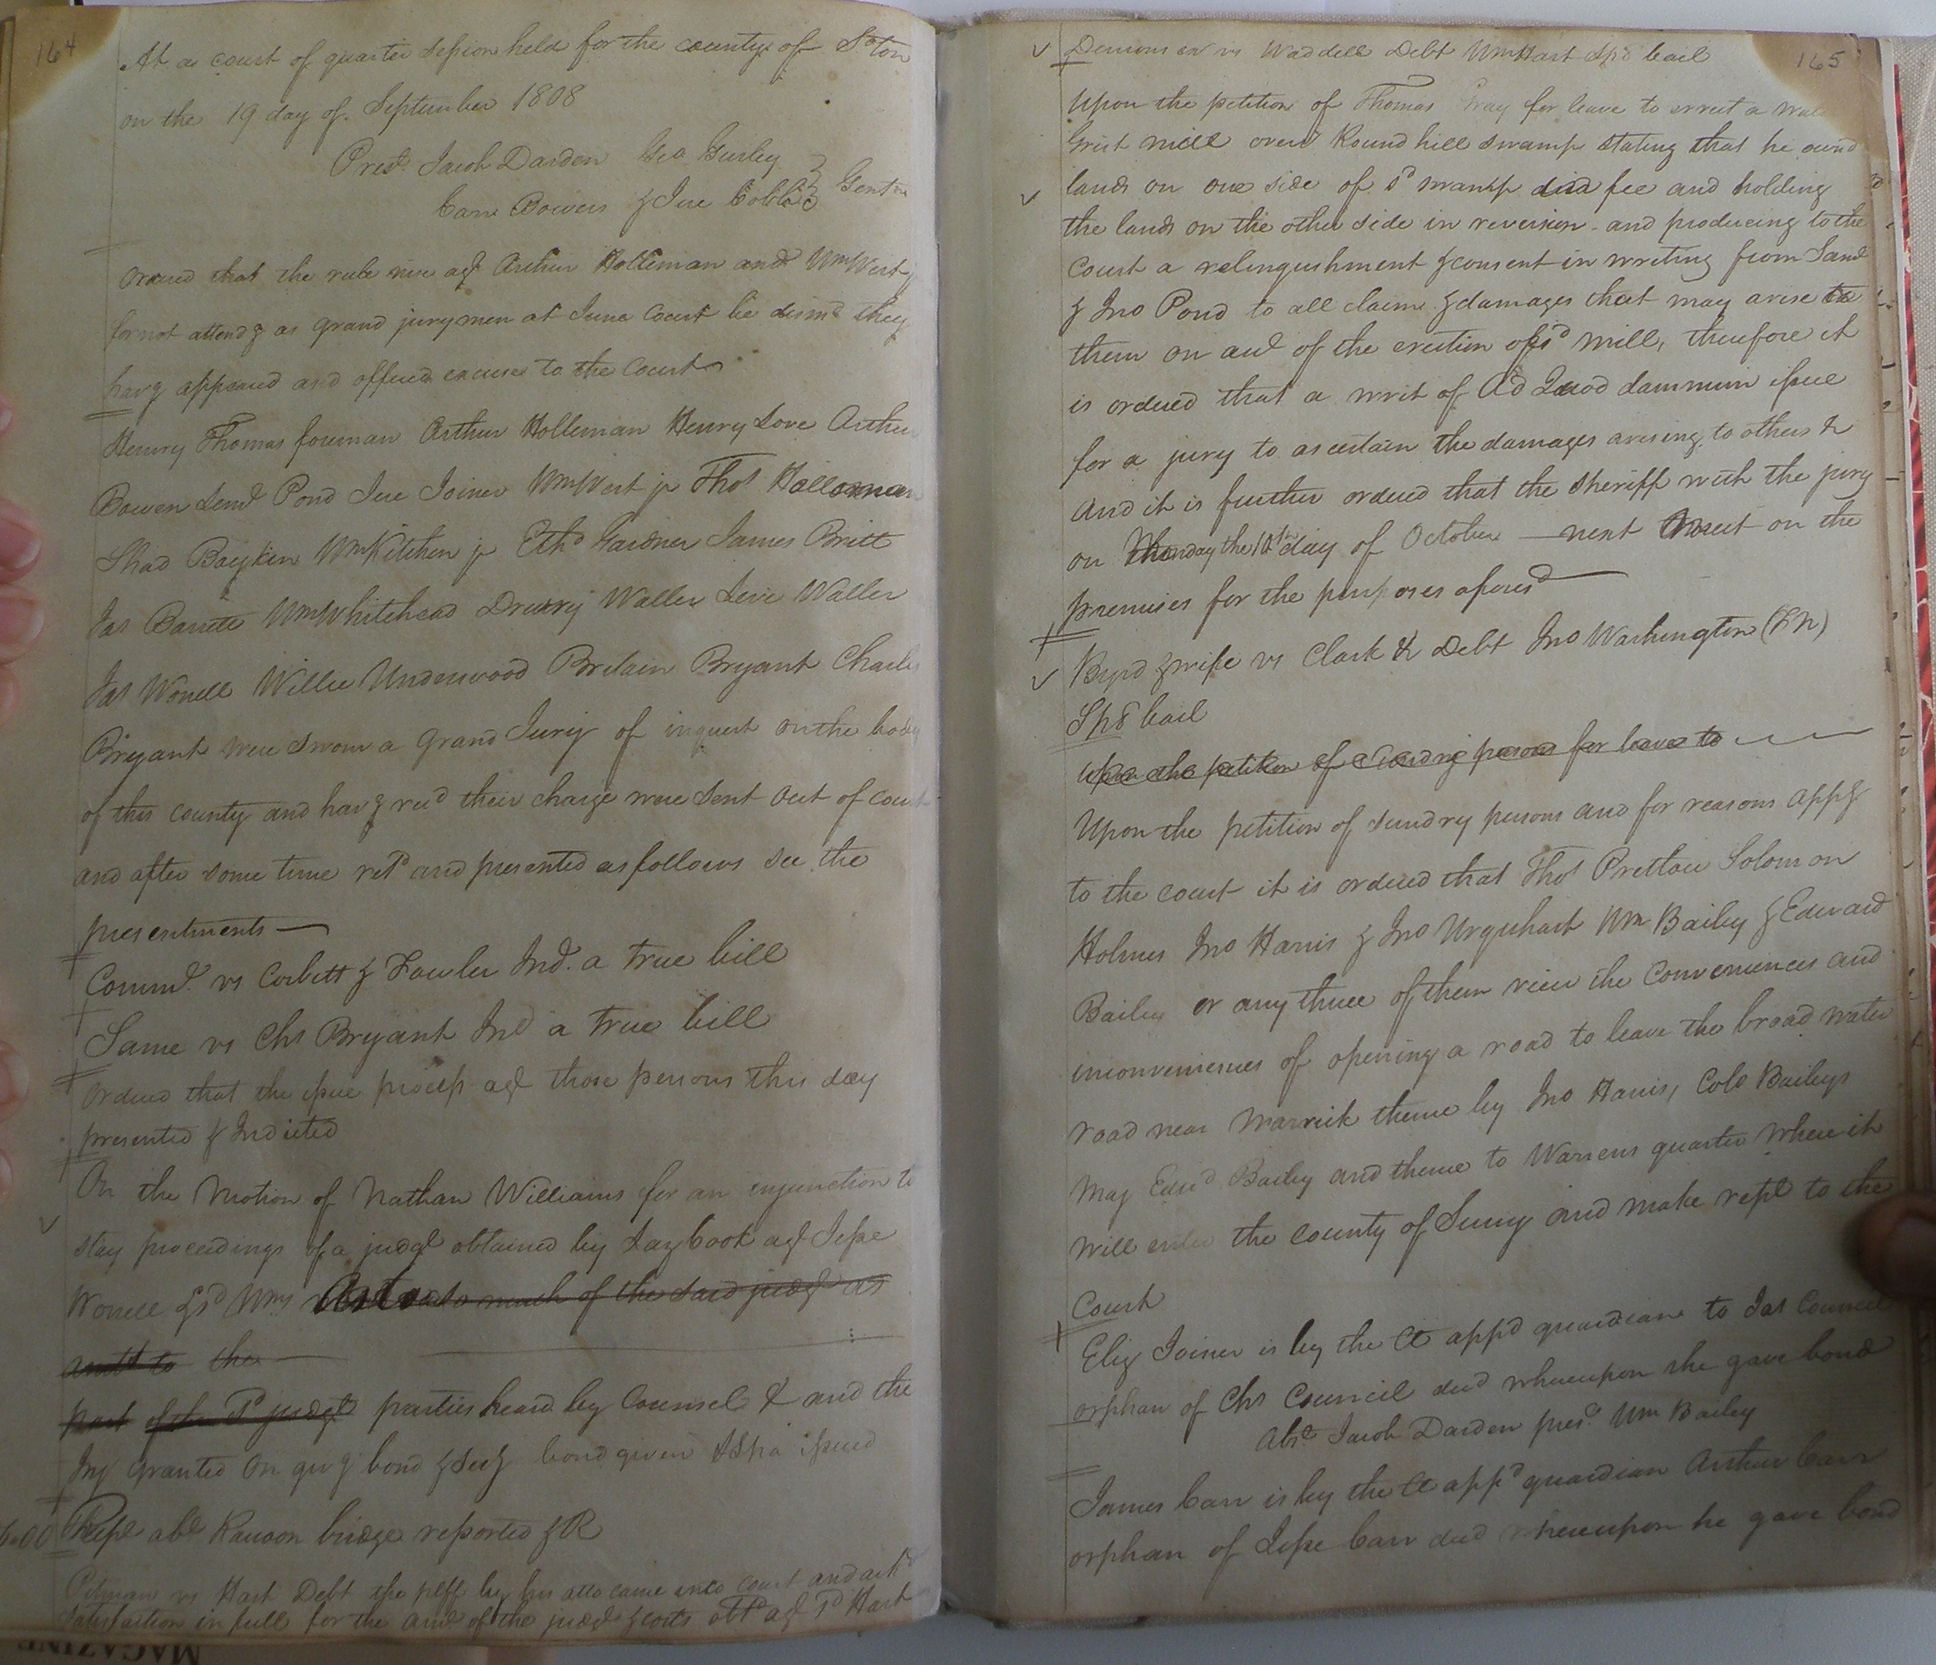 164
At a court of quarter Session held for the county of Soton
on the 19 day of September 1808
Prest. Jacob Darden Geo Gurley
Carr Bowers & Jere Cobb Gentn
Ordered that the rule nisi agt Arthur Holleman and Wm West jr
for not attendg as grand jurymen at June Court be dismd they
havg appeared and offered excuses to the Court
Henry Thomas foreman Arthur Holleman Henry Love Arthur
Bowen Leml Pond Jere Joiner Wm West jr Thos Holloman
Shad Boykin Wm Kitchen jr Ethd Gardner James Britt
Jas Barrett Wm Whitehead Drewry Waller Levi Waller
Jas Worrell Willie Underwood Britain Bryant Charles
Bryant were sworn a Grand Jury of inquest on the body
of this county and havg recd their charge were sent out of court
and after some time retd and presented as follows see the
presentments
Commd. vs Corbett & Fowler Ind. a true bill
Same vs Chs Bryant Ind a true bill
Ordered that the issue process agt those persons this day
presented & Indicted
On the motion of Nathan Williams for an injunction to
stay proceedings of a judgt obtained by Laybook agt Jesse
Worrell & sd Wms as to so much of the said judgt as
amts to the
part of the sd judgt parties heard by Counsel & and the
Inj granted on givg bond & secy bond given & Spa issued
6-00 Rept abt Rawson bridge reported & R
Pitman vs Hart Debt the plff by his atto came into court and ackd
satisfaction in full for the amt of the judgt & costs obtd agt sd Hart
165
Demons exr vs Waddell Debt Wm Hart Spl bail
Upon the petition of Thomas Gray for leave to errect a
Grist mill over Round hill swamp stating that he ownd
lands on one side of sd swamp in fee and holding
the lands on the other side in reversion and producing to the
Court a relinquishment & consent in writing from Saml
& Jno Pond to all claim & damages that may arise to
them on act of the erection of sd mill, therefore it
is ordered that a writ of Ad Quod damnum issue
for a jury to ascertain the damages arising to others &
And it is further ordered that the sheriff with the jury
on Monday the 10th day of October next meet on the
premises for the purposes aforesd
Byrd & wife vs Clark & Debt Jno Washington (LN)
Spl bail
Upon the petition of Sundry persons for leave to
Upon the petition of sundry persons and for reasons appg
to the court it is ordered that Thos Pretlow Solomon
Holmes Jno Harris & Jno Urquhart Wm Bailey & Edward
Bailey or any three of them view the Conveniences and
inconveniences of opening a road to leave the broad water
road near Warrick thence by Jno Harris, Colo Baileys
Maj Edwd Bailey and thence to Warrens quarter where it
will enter the county of Surry and make rept to the
Court
Eliz Joiner is by the Ct appd guardian to Jas Council
orphan of Chs Council decd whereupon she gave bond
Abst Jacob Darden prest. Wm Bailey
James Carr is by the Ct appd guardian Arthur Carr
orphan of Jesse Carr decd whereupon he gave bond
MAGAZINE